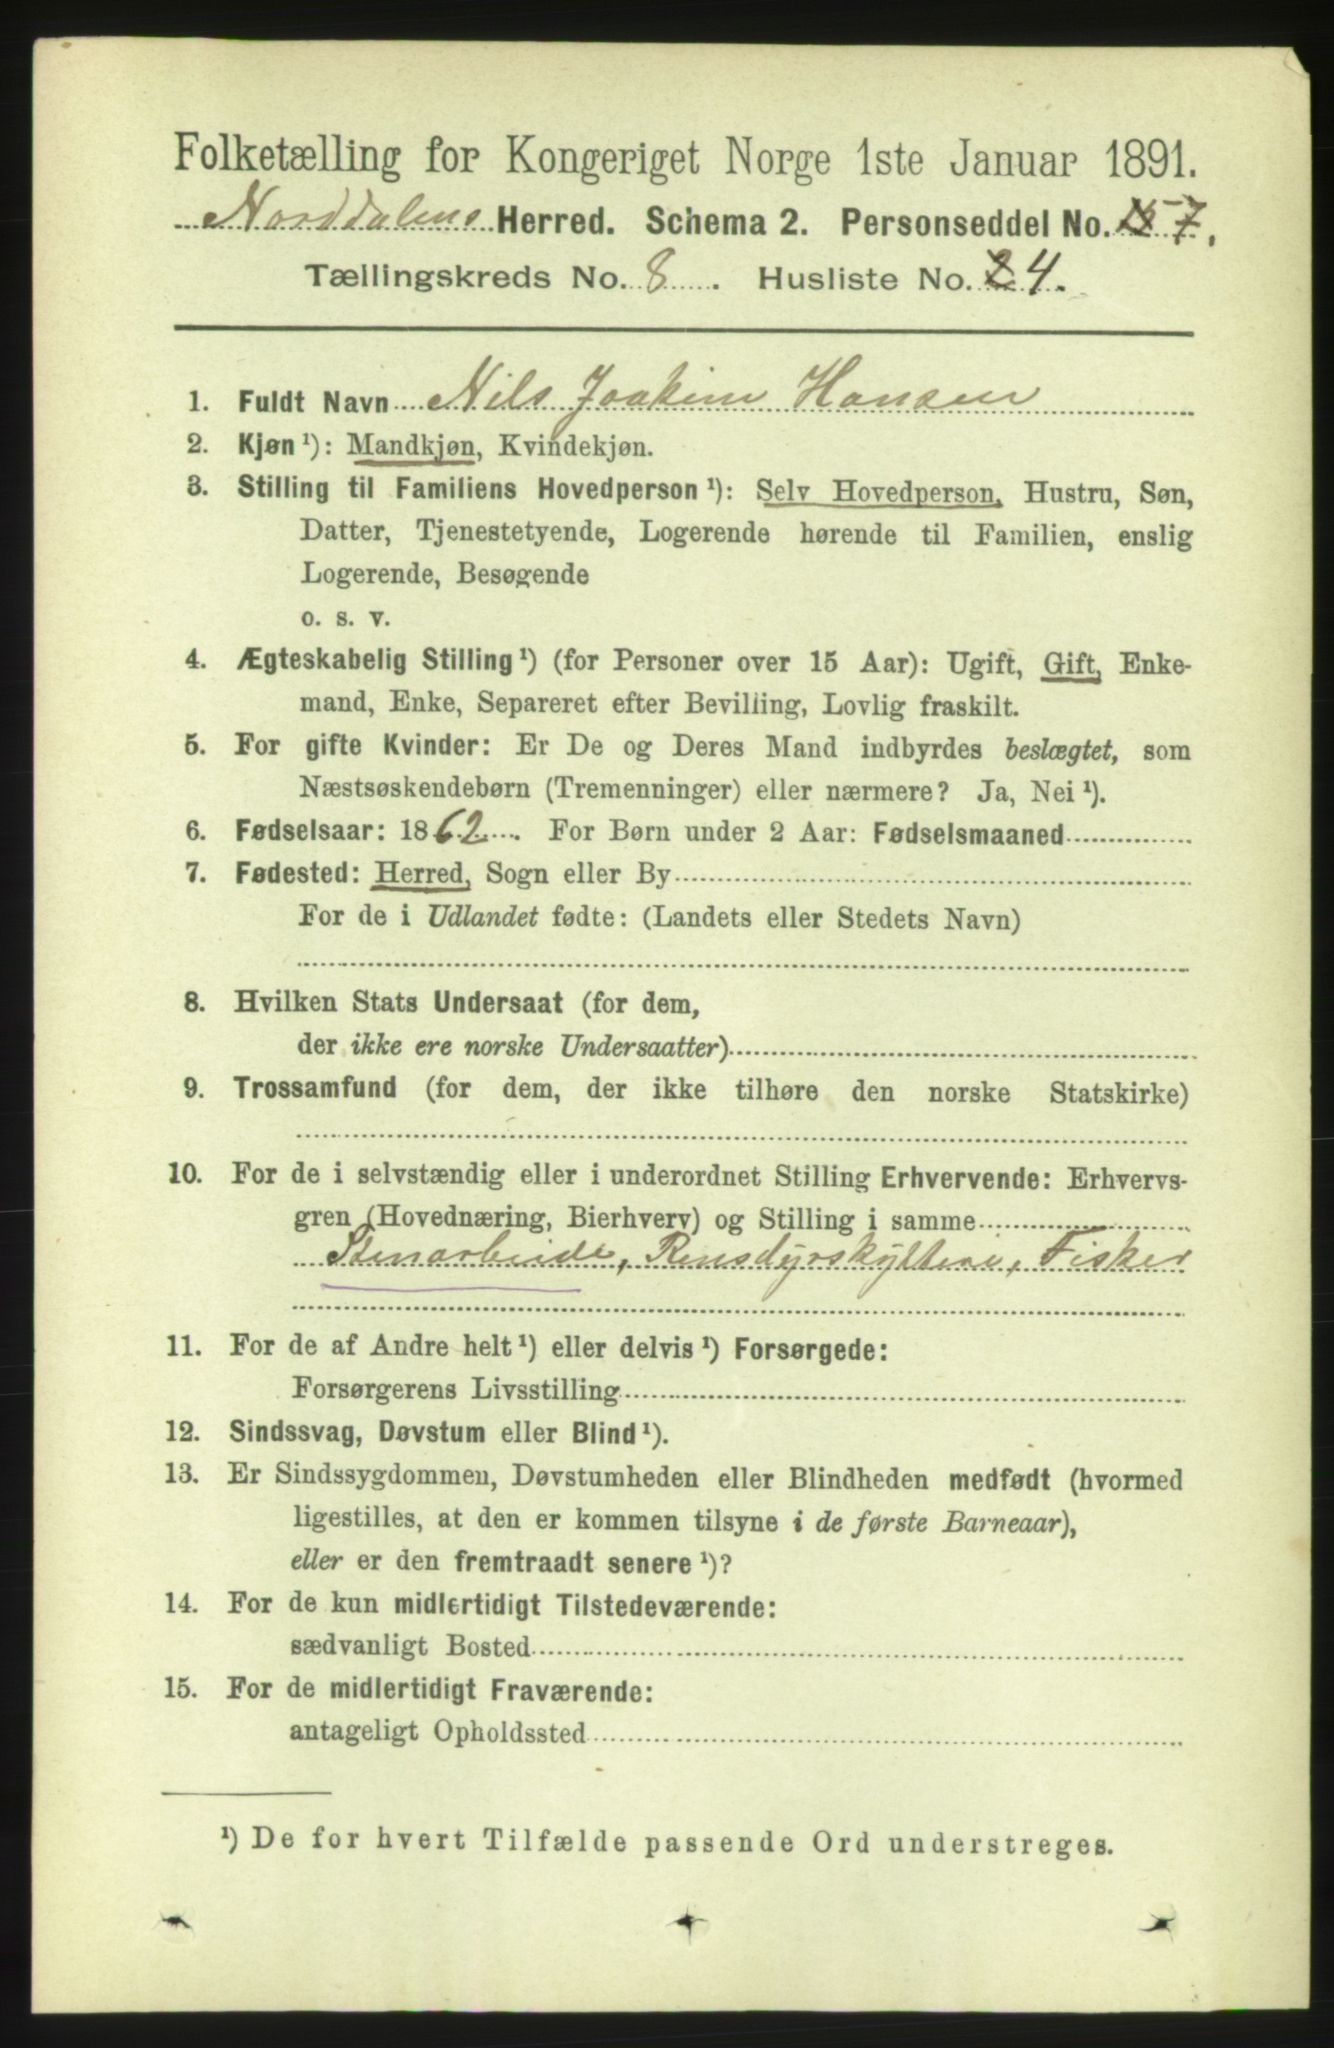 Folketælling for Kongeriget Norge 1ste Januar 1891.
Norddalens Herred. Schema 2. Personseddel No. 7.
Tællingskreds No. 8. Husliste No. 24.
1. Fuldt Navn Nils Joakim Hansen
2. Kjøn ¹): Mandkjøn, Kvindekjøn.
3. Stilling til Familiens Hovedperson ¹): Selv Hovedperson, Hustru, Søn,
Datter, Tjenestetyende, Logerende hørende til Familien, enslig
Logerende, Besøgende
o. s. v.
4. Ægteskabelig Stilling ¹) (for Personer over 15 Aar): Ugift, Gift, Enke-
mand, Enke, Separeret efter Bevilling, Lovlig fraskilt.
5. For gifte Kvinder: Er De og Deres Mand indbyrdes beslægtet, som
Næstsøskendebørn (Tremenninger) eller nærmere? Ja, Nei ¹).
6. Fødselsaar: 1862. For Børn under 2 Aar: Fødselsmaaned
7. Fødested: Herred, Sogn eller By
For de i Udlandet fødte: (Landets eller Stedets Navn)
8. Hvilken Stats Undersaat (for dem,
der ikke ere norske Undersaatter)
9. Trossamfund (for dem, der ikke tilhøre den norske Statskirke)
10. For de i selvstændig eller i underordnet Stilling Erhvervende: Erhvervs-
gren (Hovednæring, Bierhverv) og Stilling i samme
Stenarbeide, Rensdyrskytteri, Fisker
11. For de af Andre helt ¹) eller delvis ¹) Forsørgede:
Forsørgerens Livsstilling
12. Sindssvag, Døvstum eller Blind ¹).
13. Er Sindssygdommen, Døvstumheden eller Blindheden medfødt (hvormed
ligestilles, at den er kommen tilsyne i de første Barneaar),
eller er den fremtraadt senere ¹)?
14. For de kun midlertidigt Tilstedeværende:
sædvanligt Bosted
15. For de midlertidigt Fraværende:
antageligt Opholdssted
¹) De for hvert Tilfælde passende Ord understreges.